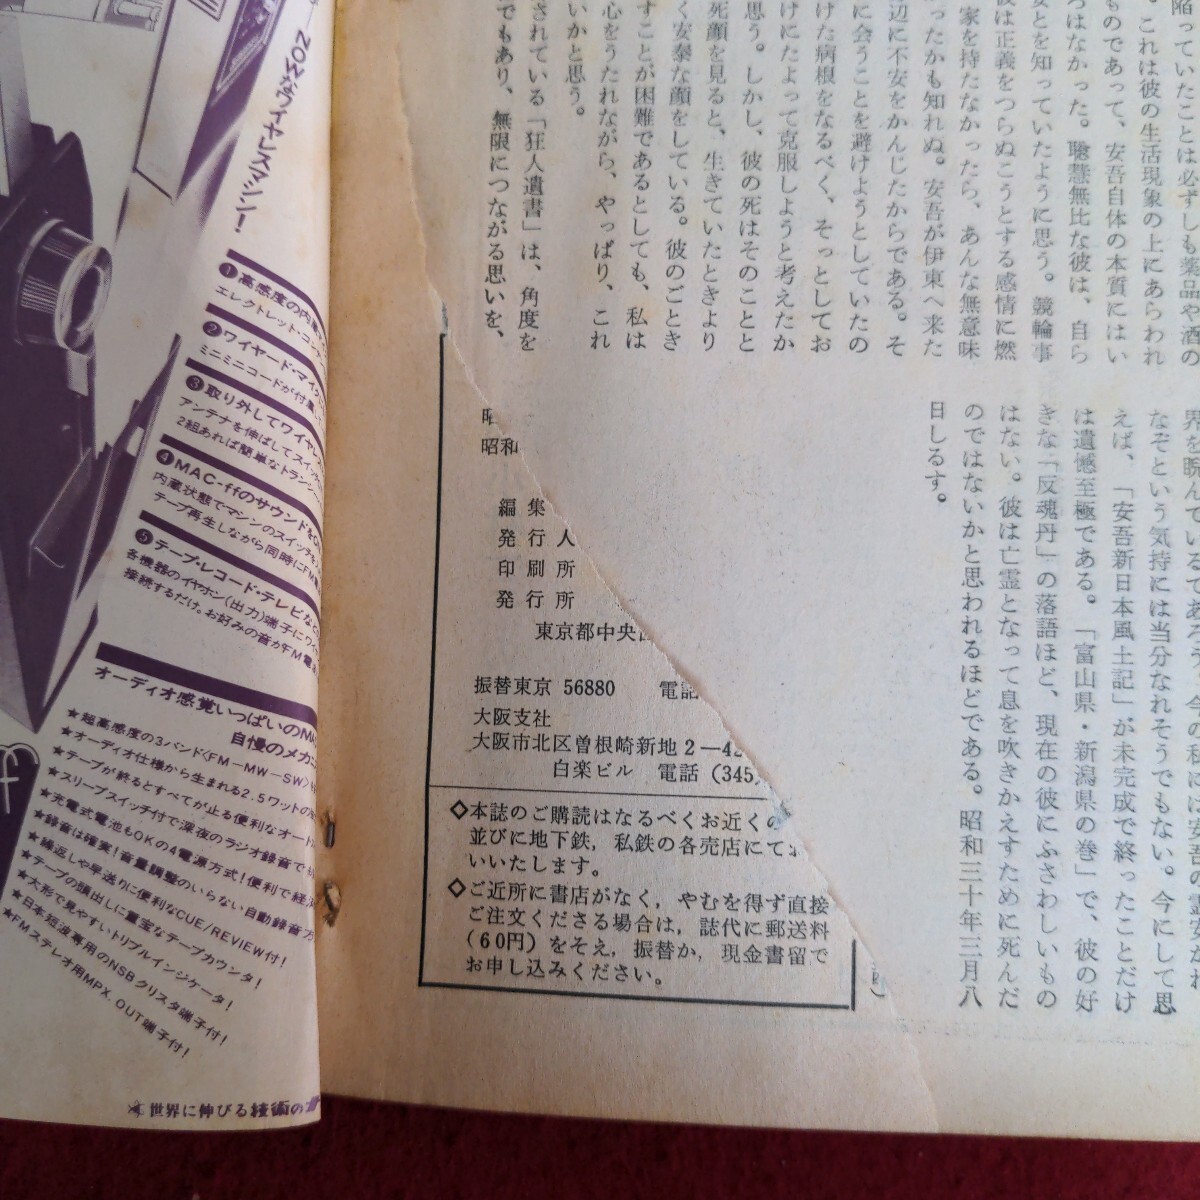 NOWなワイヤレスマシン!
❶高感度の内蔵
エレクトレット・コンデ
❷ワイヤード・マイク
ミニミニコードが付属
❸取り外してワイヤレス
アンテナを伸ばしてスイッチ
2組あれば簡単なトランシ
❹MAC-ffのサウンドを
内蔵状態でマシンのスイッチを
テープ再生しながら同時にFM
❺テープ・レコード・テレビなど
各機器のイヤホン(出力)端子にワイ
接続するだけ。お好みの音がFM電
オーディオ感覚いっぱいのMA
自慢のメカニ
★超高感度の3バンド〈FM-MW-SW〉
★オーディオ仕様から生まれる2.5ワットの
★テープが終るとすべてが止る便利なオート
★スリープスイッチ付で深夜のラジオ録音で
★充電式電池もOKの4電源方式!便利で経
★録音は確実!音量調整のいらない自動録音方
★繰返しや早送りに便利なCUE/REVIEW付!
★テープの頭出しに重宝なテープカウンタ!
★大形で見やすいトリプルインジケータ!
★日本短波専用のNSBクリスタ端子付!
★FMステレオ用MPX OUT端子付!
世界に伸びる技術の
陥っていたことは必ずしも薬品や酒の
。これは彼の生活現象の上にあらわれ
ものであって、安吾自体の本質にはい
ろはなかった。聡慧無比な彼は、自ら
安とを知っていたように思う。競輪事
彼は正義をつらぬこうとする感情に燃
家を持たなかったら、あんな無意味
ったかも知れぬ。安吾が伊東へ来た
辺に不安をかんじたからである。そ
に会うことを避けようとしていたの
けた病根をなるべく、そっとしてお
けにたよって克服しようと考えたか
思う。しかし、彼の死はそのことと
死顔を見ると、生きていたときより
く安泰な顔をしている。彼のごとき
すことが困難であるとしても、私は
心をうたれながら、やっぱり、これ
いかと思う。
されている「狂人遺書」は、角度を
でもあり、無限につながる思いを、
なぞという気持には当分なれそうでもない。今にして思
えば、「安吾新日本風土記」が未完成で終ったことだけ
は遺憾至極である。「富山県・新潟県の巻」で、彼の好
きな「反魂丹」の落語ほど、現在の彼にふさわしいもの
はない。彼は亡霊となって息を吹きかえすために死んだ
のではないかと思われるほどである。昭和三十年三月八
日しるす。
昭和
編集
発行人
印刷所
発行所
東京都中央
振替東京 56880 電話
大阪支社
大阪市北区曽根崎新地2―4
白楽ビル 電話(345)
◇本誌のご購読はなるべくお近くの
並びに地下鉄，私鉄の各売店にて
いいたします。
◇ご近所に書店がなく，やむを得ず直接
ご注文くださる場合は，誌代に郵送料
(60円)をそえ，振替か，現金書留で
お申し込みください。